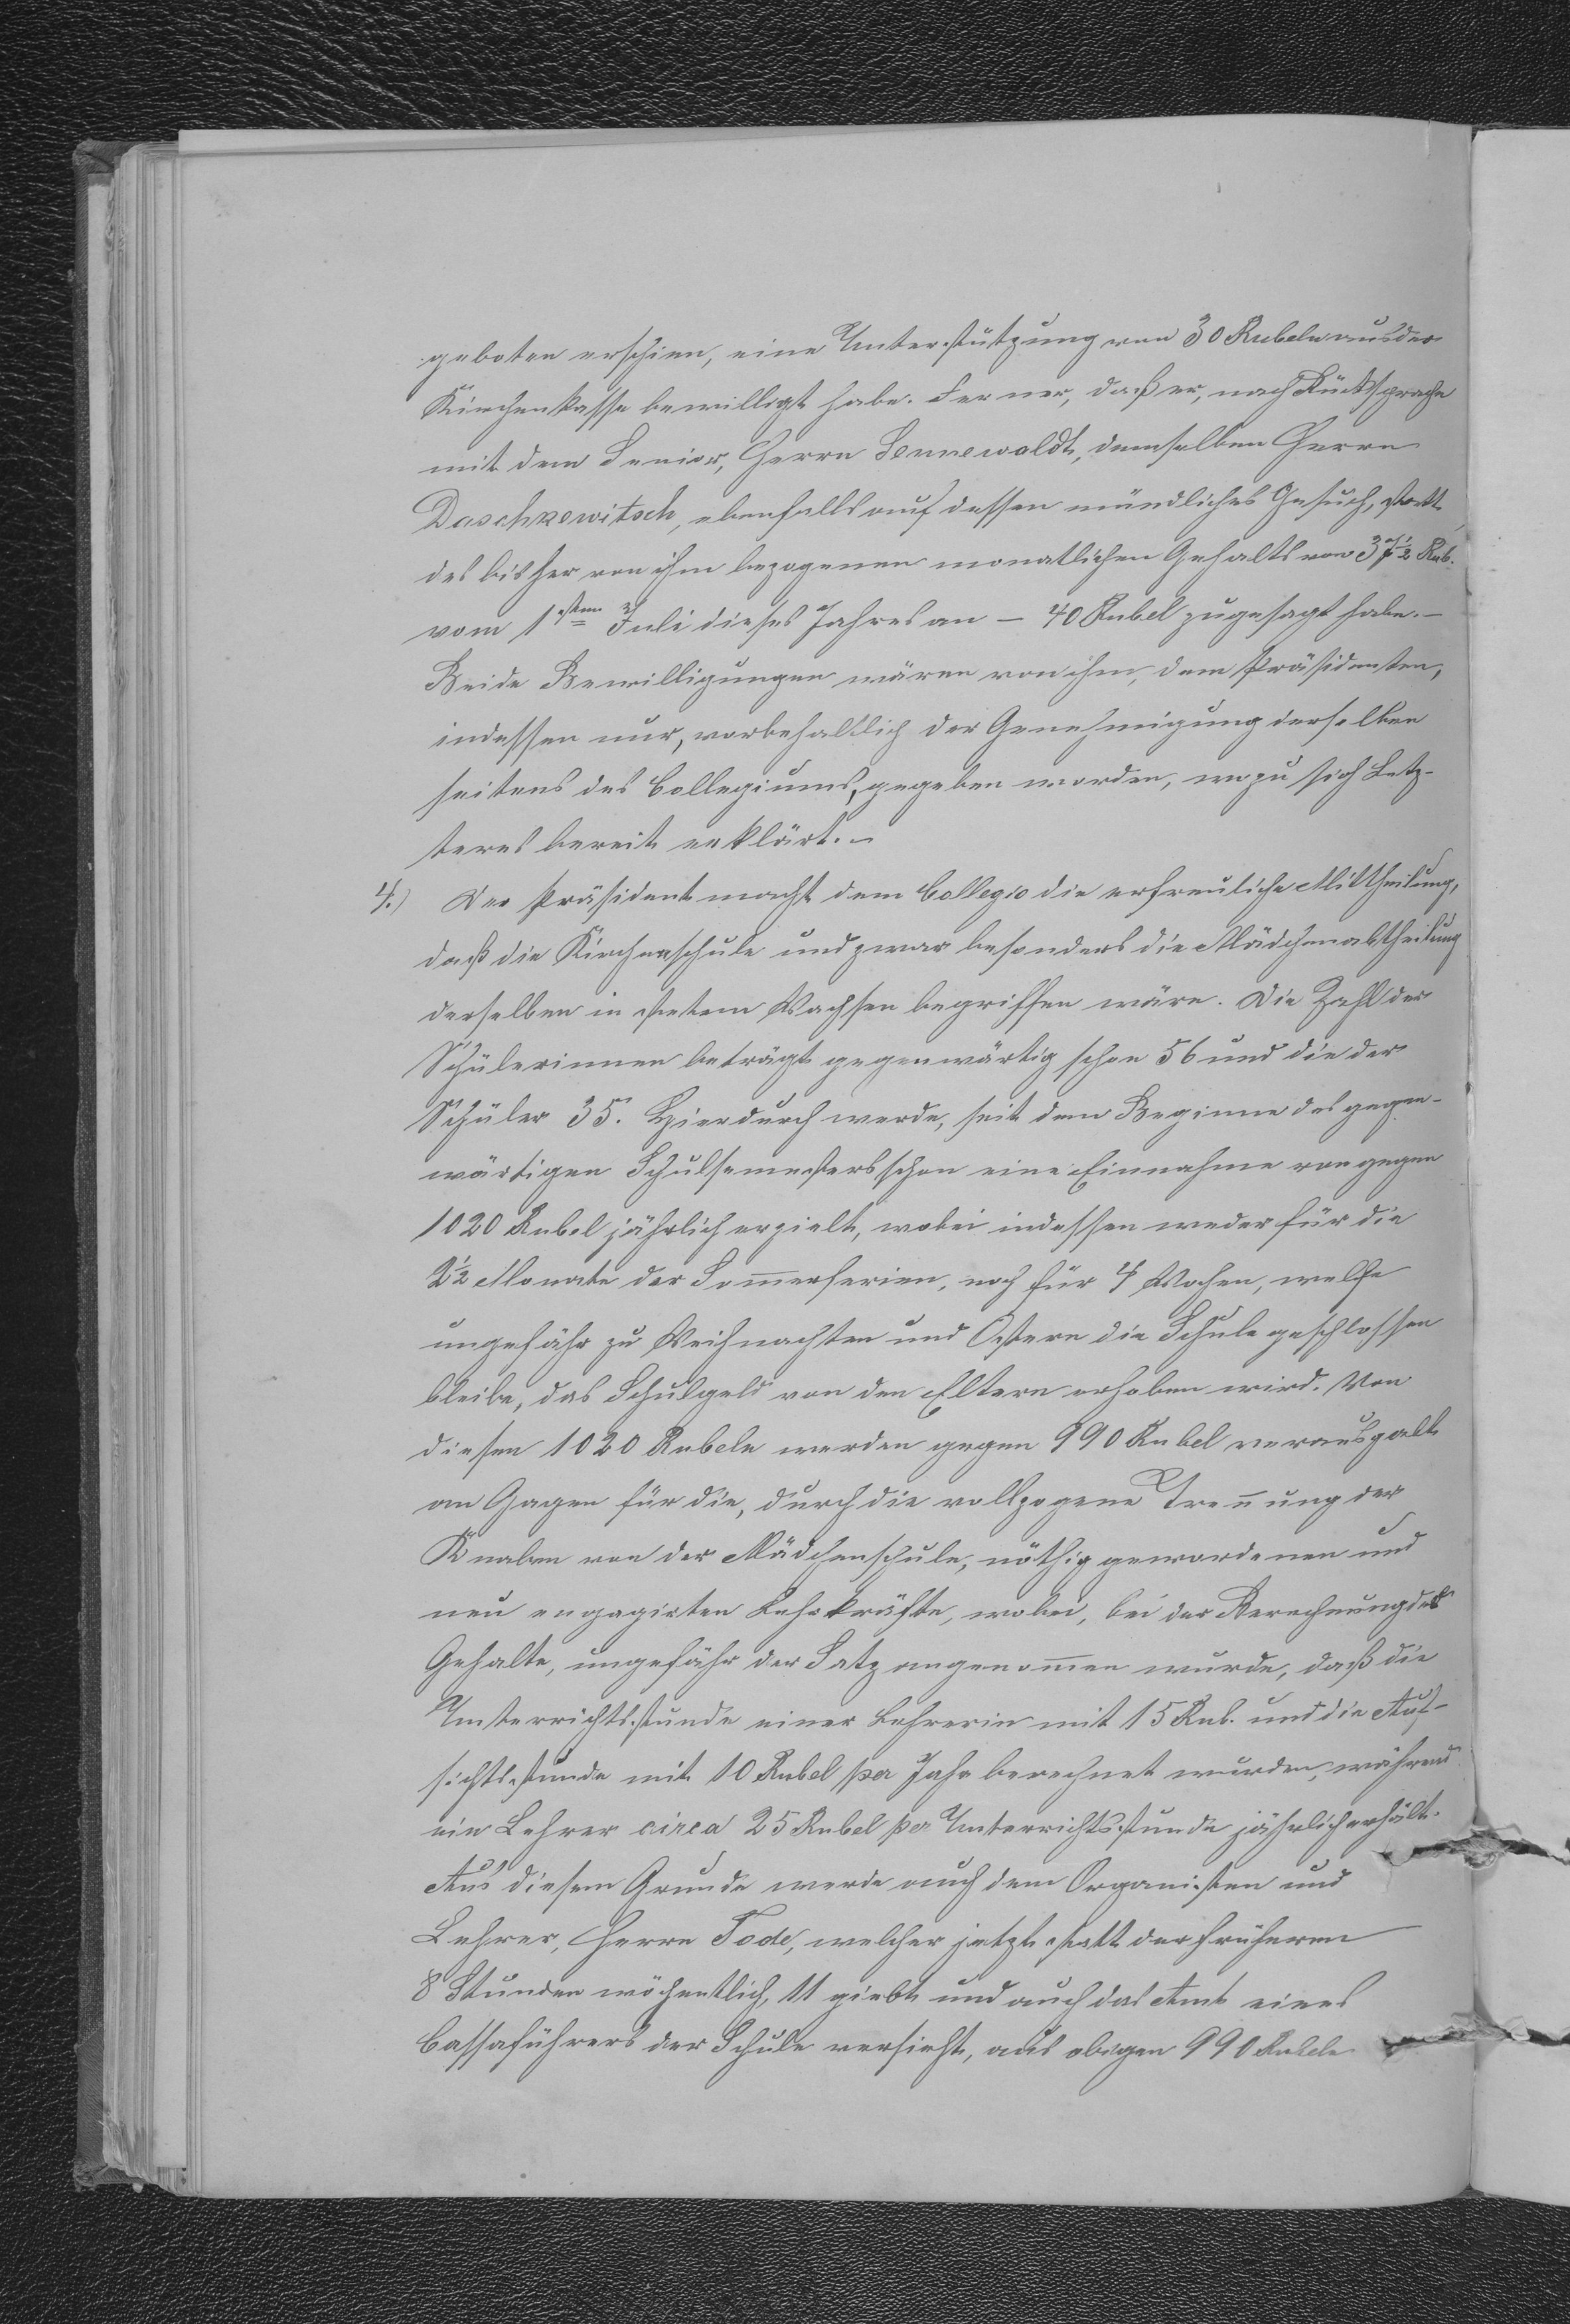 geboten erschien, eine Unterstützung von 30 Rubeln aus der
Kirchenkasse bewilligt habe. Ferner, daß er, nach Rücksprache
mit dem Senior, Herrn Sennewaldt, demselben Herrn
Daschkewitsch, ebenfalls auf dessen mündliches Gesuch, statt
des bisher von ihm bezogenen monatlichen Gehalts von 37½ Rub.
vom 1sten Juli dieses Jahres an – 40 Rubel zugesagt habe. –
Beide Bewilligungen wären von ihm, dem Präsidenten,
indessen nur, vorbehaltlich der Genehmigung derselben
seitens des Collegiums, gegeben worden, wozu sich Letz-
teres bereit erklärt. –
4.) Der Präsident macht dem Collegio die erfreuliche Mittheilung,
daß die Kirchenschule und zwar besonders die Mädchenabtheilung
derselben in stetem Wachsen begriffen wäre. Die Zahl der
Schülerinnen beträgt gegenwärtig schon 56 und die der
Schüler 35. Hierdurch werde, seit dem Beginne des gegen-
wärtigen Schulsemesters schon eine Einnahme von gegen
1020 Rubel jährlich erzielt, wobei indessen weder für die
2½ Monate der Som̄erferien, noch für 4 Wochen, welche
ungefähr zu Weihnachten und Ostern die Schule geschlossen
bleibe, das Schulgeld von den Eltern erhoben wird. Von
diesen 1020 Rubeln werden gegen 990 Rubel verausgabt
an Gagen für die, durch die vollzogene Treñung der
Knaben von der Mädchenschule, nöthig gewordenen und
neu engagirten Lehrkräfte, wobei, bei der Berechnung des
Gehalts, ungefähr der Satz angenom̄en wurde, daß die
Unterrichtsstunde einer Lehrerin mit 15 Rub. und die Auf-
sichtsstunde mit 10 Rubel per Jahr berechnet wurden, während
ein Lehrer circa 25 Rubel per Unterrichtsstunde jährlich erhält.
Aus diesem Grunde werde auch dem Organisten und
Lehrer, Herrn Tode, welcher jetzt statt der früheren
8 Stunden wöchentlich, 11 giebt und auch das Amt eines
Cassaführers der Schule versieht, aus obigen 990 Rubeln